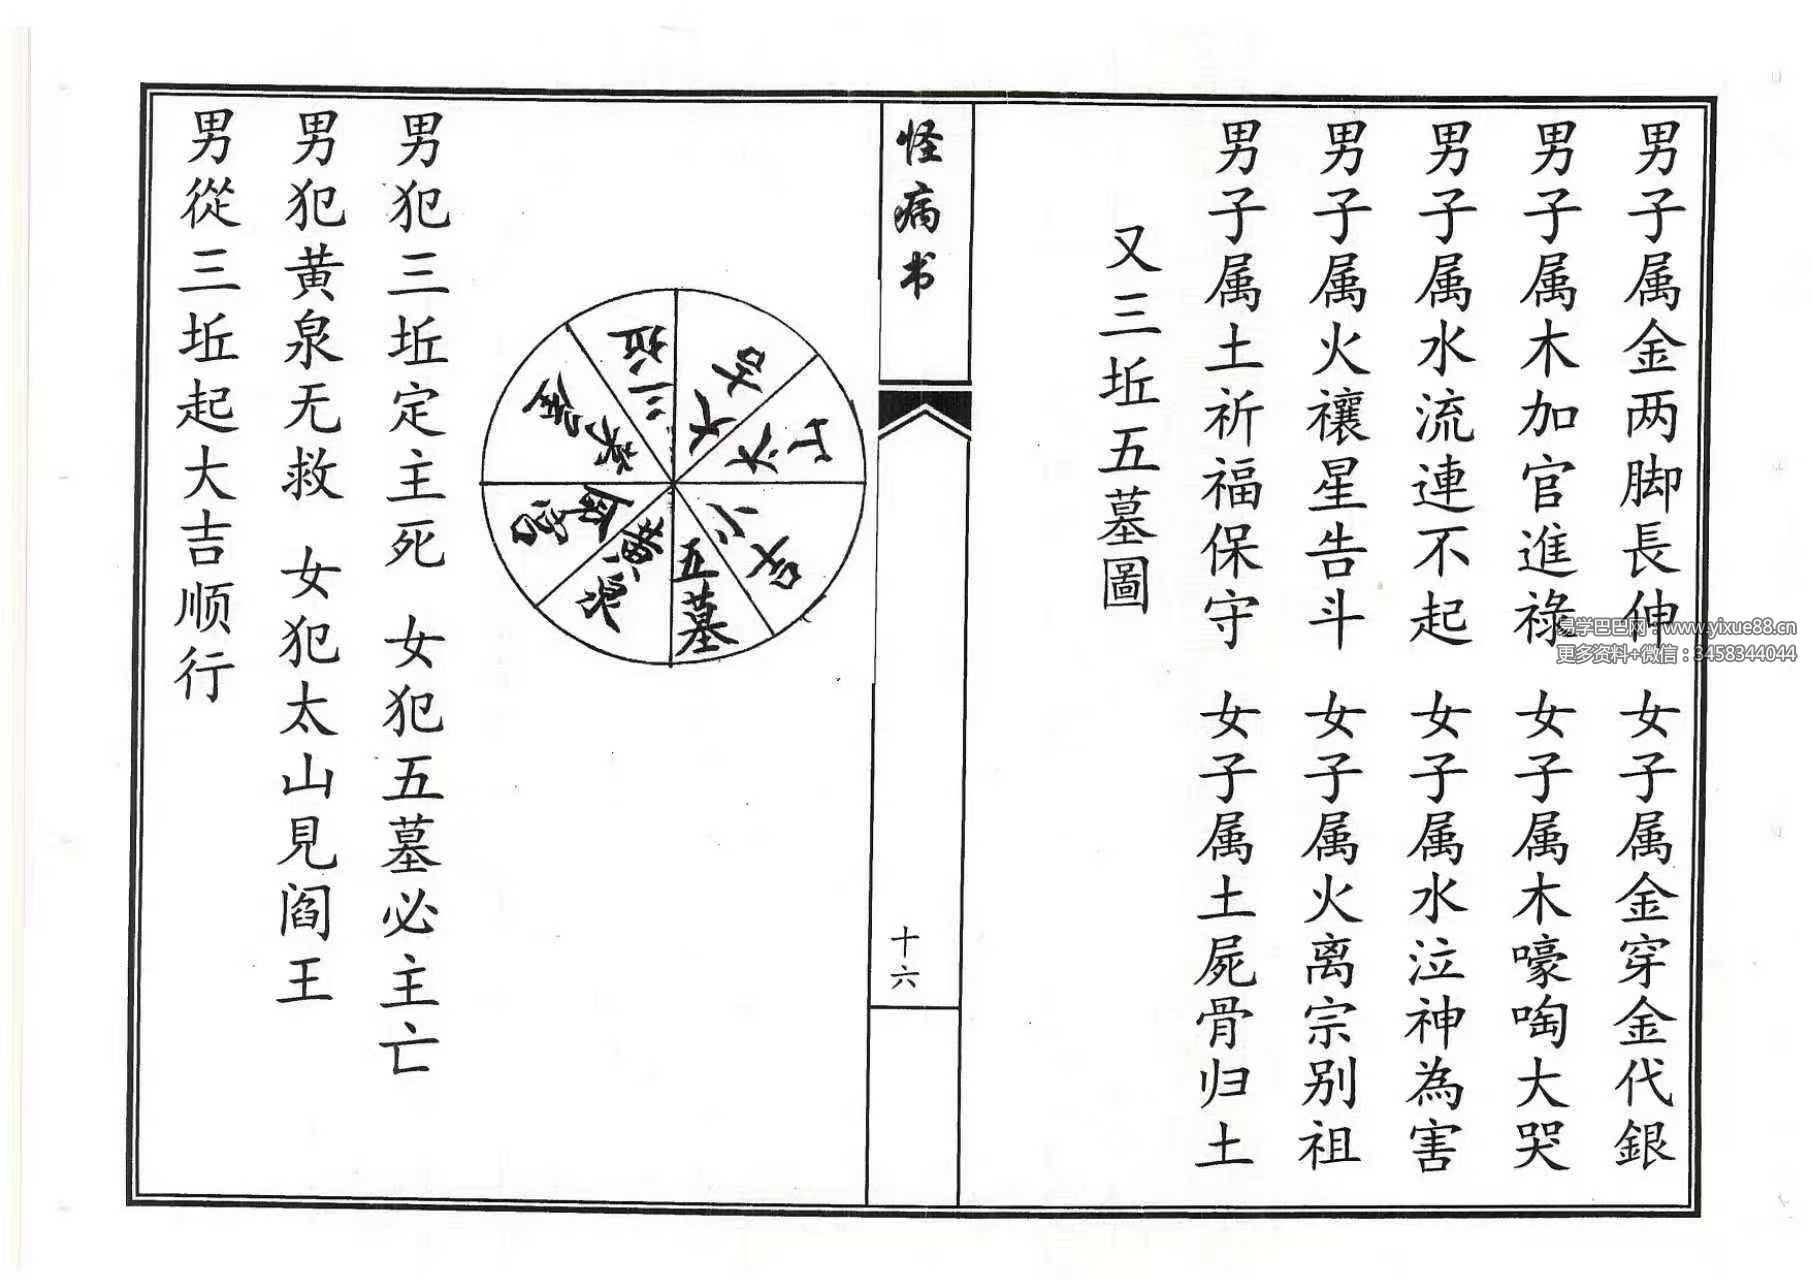 男子属金两脚長伸 女子属金穿金代銀
男子属木加官進祿 女子属木嚎啕大哭
男子属水流連不起 女子属水泣神為害
男子属火禳星告斗 女子属火离宗别祖
男子属土祈福保守 女子属土屍骨归土
又三坵五墓圖
怪病书
十六
三坵
大吉
五墓
黄泉
男犯三坵定主死 女犯五墓必主亡
男犯黄泉无救 女犯太山見阎王
男從三坵起大吉顺行
易学巴巴网：www.yixue88.cn
更多资料+微信：3458344044